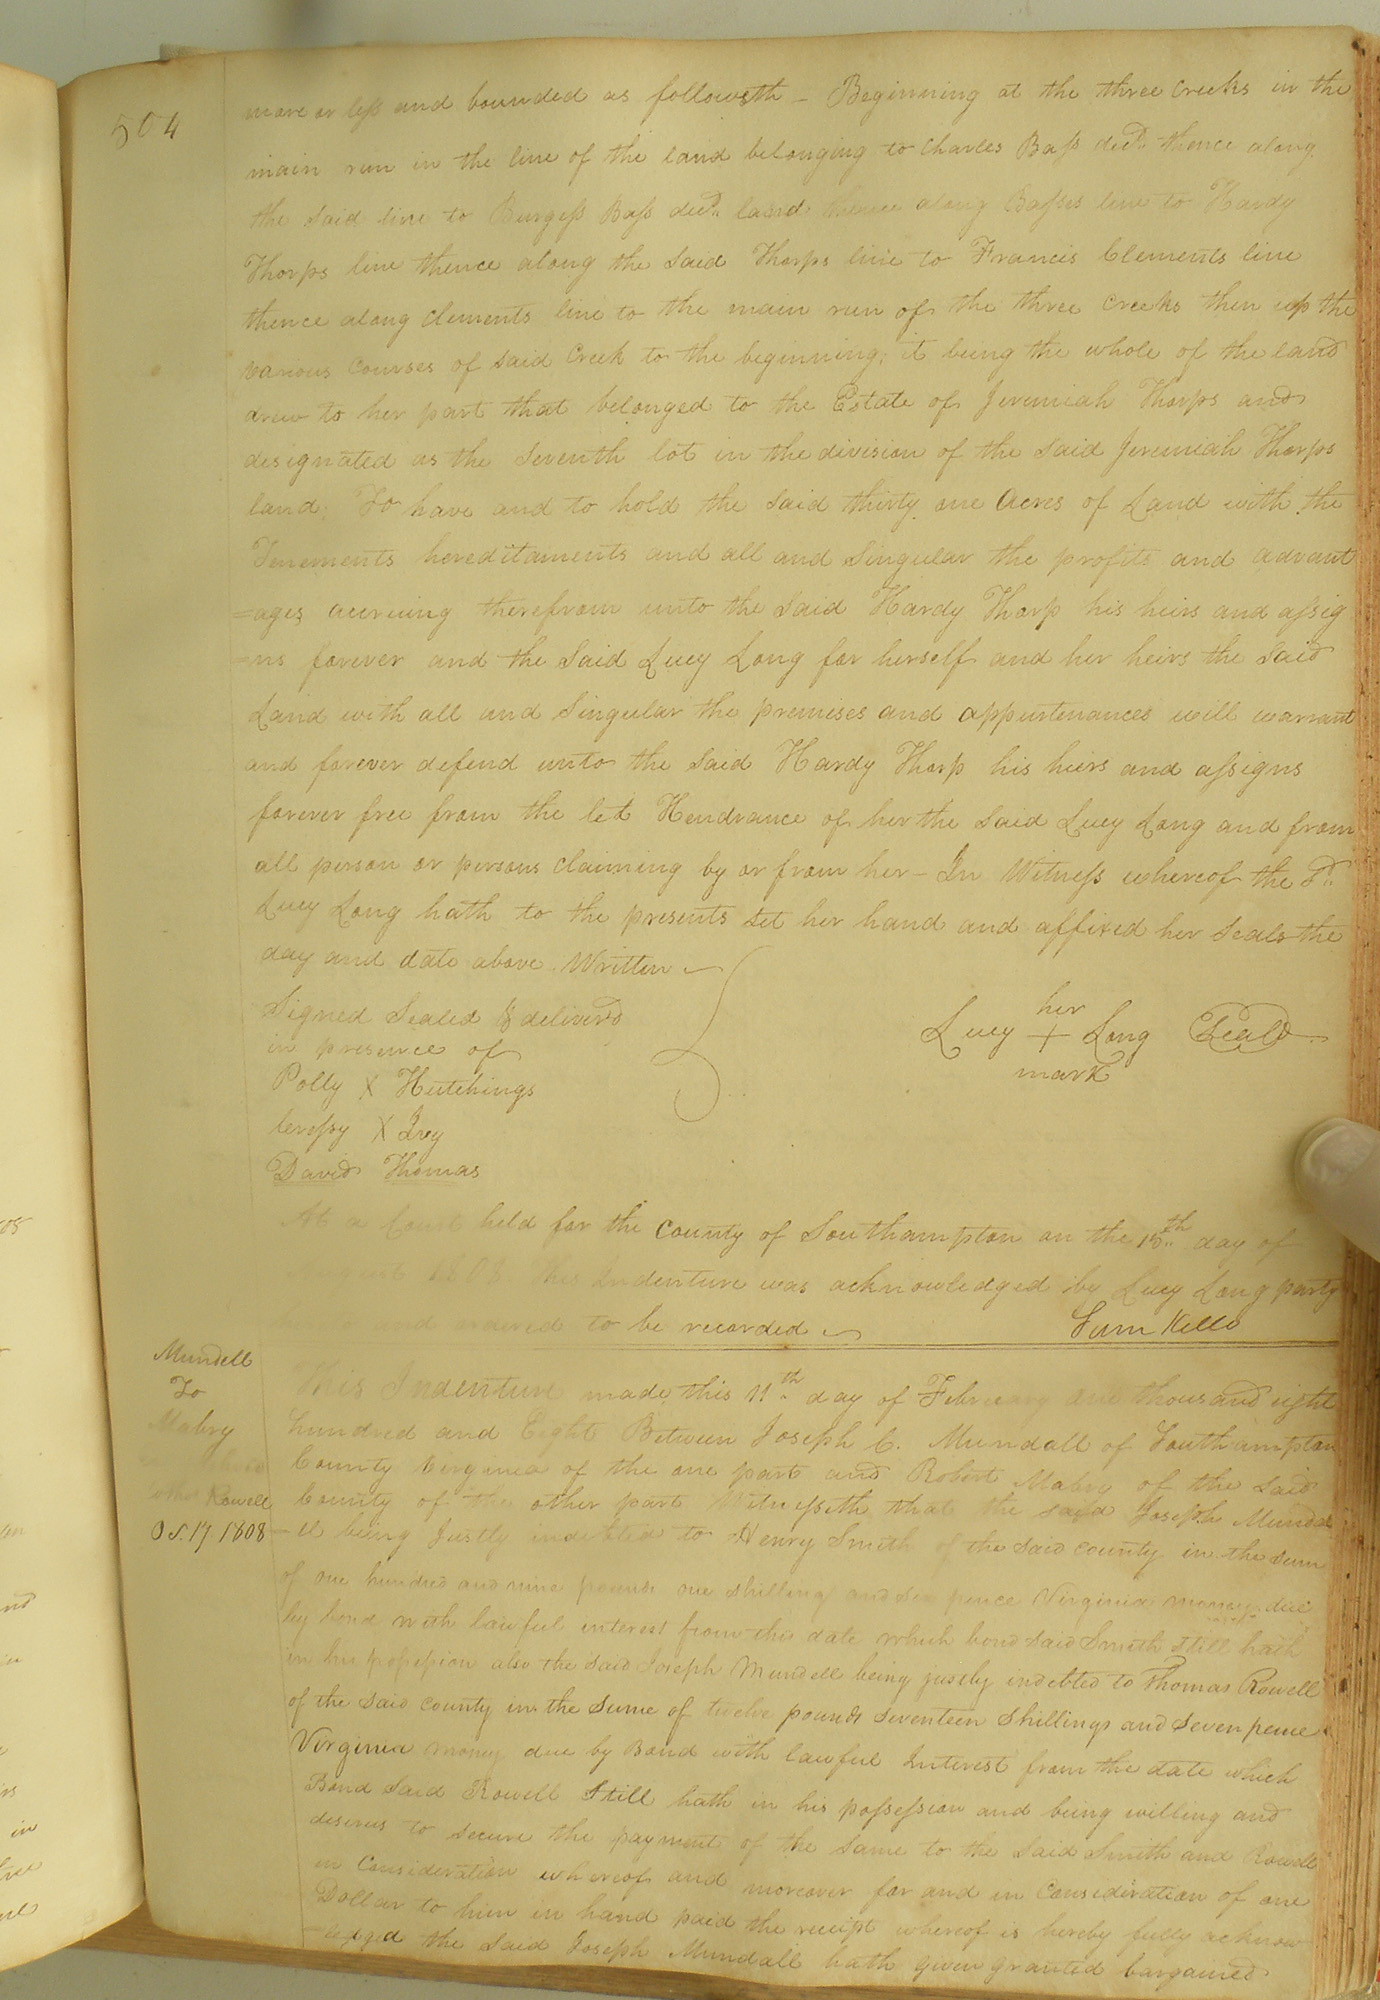 504
more or less and bounded as followeth - Beginning at the three Creeks in the
main run in the line of the land belonging to Charles Bass decd. thence along
the said line to Burgess Bass decd. land thence along Basses line to Hardy
Thorps line thence along the said Thorps line to Francis Clements line
thence along Clements line to the main run of the three Creeks then up the
various Courses of said Creek to the beginning; it being the whole of the land
drew to her part that belonged to the Estate of Jeremiah Thorps and
designated as the Seventh lot in the division of the said Jeremiah Thorps
land. To have and to hold the said thirty one Acres of Land with the
Tenements hereditaments and all and Singular the profits and advant
=ages accruing therefrom unto the said Hardy Thorp his heirs and assig
=ns forever and the Said Lucy Long for herself and her heirs the Said
Land with all and Singular the premises and appurtenances will warrant
and forever defend unto the said Hardy Thorp his heirs and assigns
forever free from the let Hendrance of her the said Lucy Long and from
all person or persons Claiming by or from her - In Witness whereof the Sd.
Lucy Long hath to the presents set her hand and affixed her Seals the
day and date above Written
Signed Sealed & deliver'd
in presence of
Polly X Hutchings
X Ivy
David Thomas
her
Lucy + Long Seald
mark
At a Court held for the County of Southampton on the 15th day of
August 1808 this Indenture was acknowledged by Lucy Long party
and ordered to be recorded
Sam Kello
Mundell
To
Mabry
Rowell
Os. 17 1808
This Indenture made this 11th day of February one thousand eight
hundred and Eight Between Joseph C. Mundall of Southampton
County Verginea of the one part and Robert Mabry of the said
County of the other part Witnesseth that the said Joseph Munda
=ll being Justly indebted to Henry Smith of the said County in the sum
of one hundred and nine pounds one shilling and six pence Virginia money due
by bond with lawful interest from the date which bond said Smith still hath
in his possession also the said Joseph Mundell being justly indebted to Thomas Rowell
of the said county in the sume of twelve pounds seventeen shillings and seven pence
Virginia money due by Bond with lawful Interest from the date which
Bond said Rowell Still hath in his possession and being willing and
desirus to secure the payment of the same to the said Smith and Rowell
in Consideration whereof and moreover for and in Consideration of one
Dollar to him in hand paid the receipt whereof is hereby fully acknow
=ledged the said Joseph Mundall hath given granted bargained